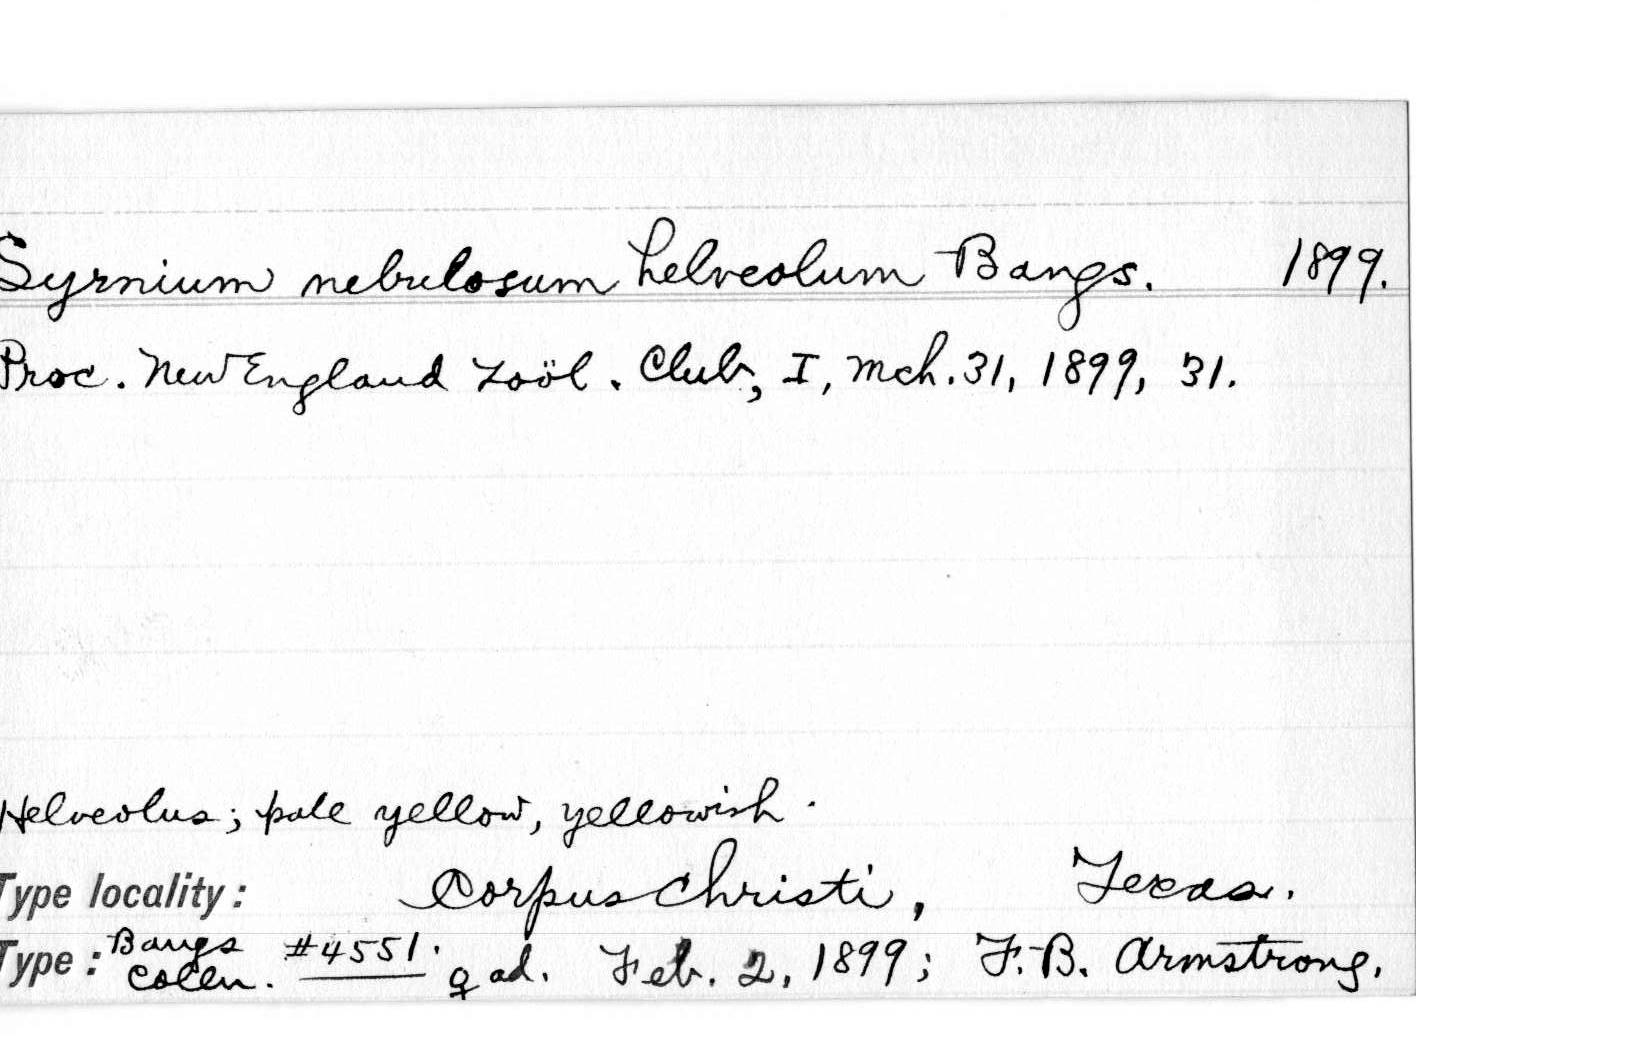 Syrnium nebulosum helveolum Bangs. 1899.
Proc. New England Zoöl. Club, I, Mch. 31, 1899, 31.
Helveolus; pale yellow, yellowish.
Type locality: Corpus Christi, Texas.
Type: Bangs Colln. #4551. ♀ ad. Feb. 2, 1899; F. B. Armstrong.